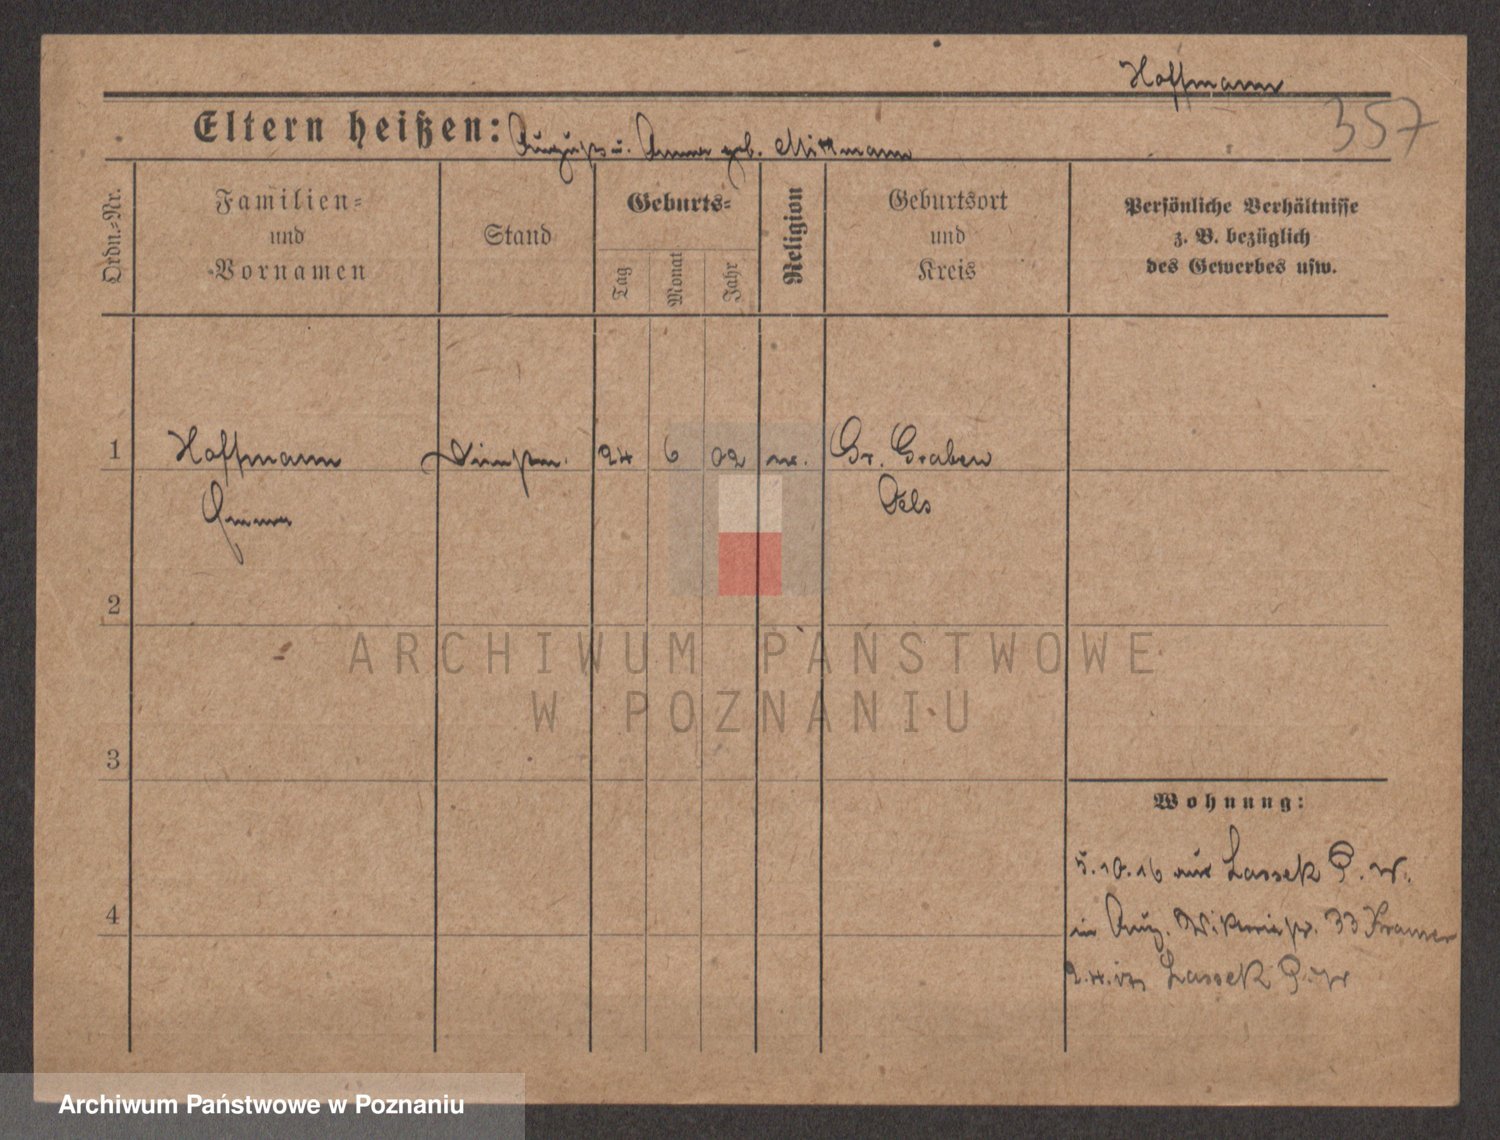 Hoffmann
357
Eltern heißen: August u. Anna geb. Mittmann
Ordn.-Nr.
Familien-
und
Vornamen
Stand
Geburts-
Tag
Monat
Jahr
Religion
Geburtsort
und
Kreis
Persönliche Verhältnisse
z. B. bezüglich
des Gewerbes usw.
1 Hoffmann 24 6 02 Gr. Graben
Emma Oels
2
ARCHIWUM PAŃSTWOWE
W POZNANIU
3
Wohnung:
5.10.16 aus Lassek P. W.
4
in Aug. Viktoriastr. 33 Kramer
2.4.17 Lassek P. W
Archiwum Państwowe w Poznaniu